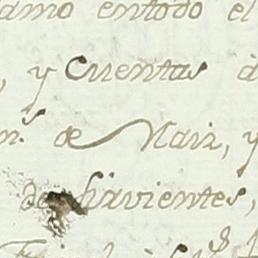 amo entodo el
, y Cuentas
de Maiz, y
de sirvientes,